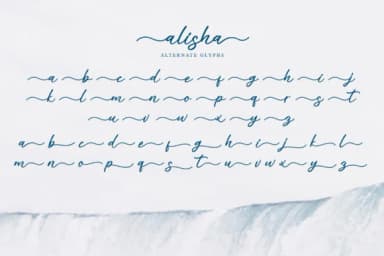 alisha
ALTERNATE GLYPHS
a b c d e f g h i j
k l m n o p q r s t
u v w x y z
a b c d e f g h i j k l
m n o p q s t u v w x y z